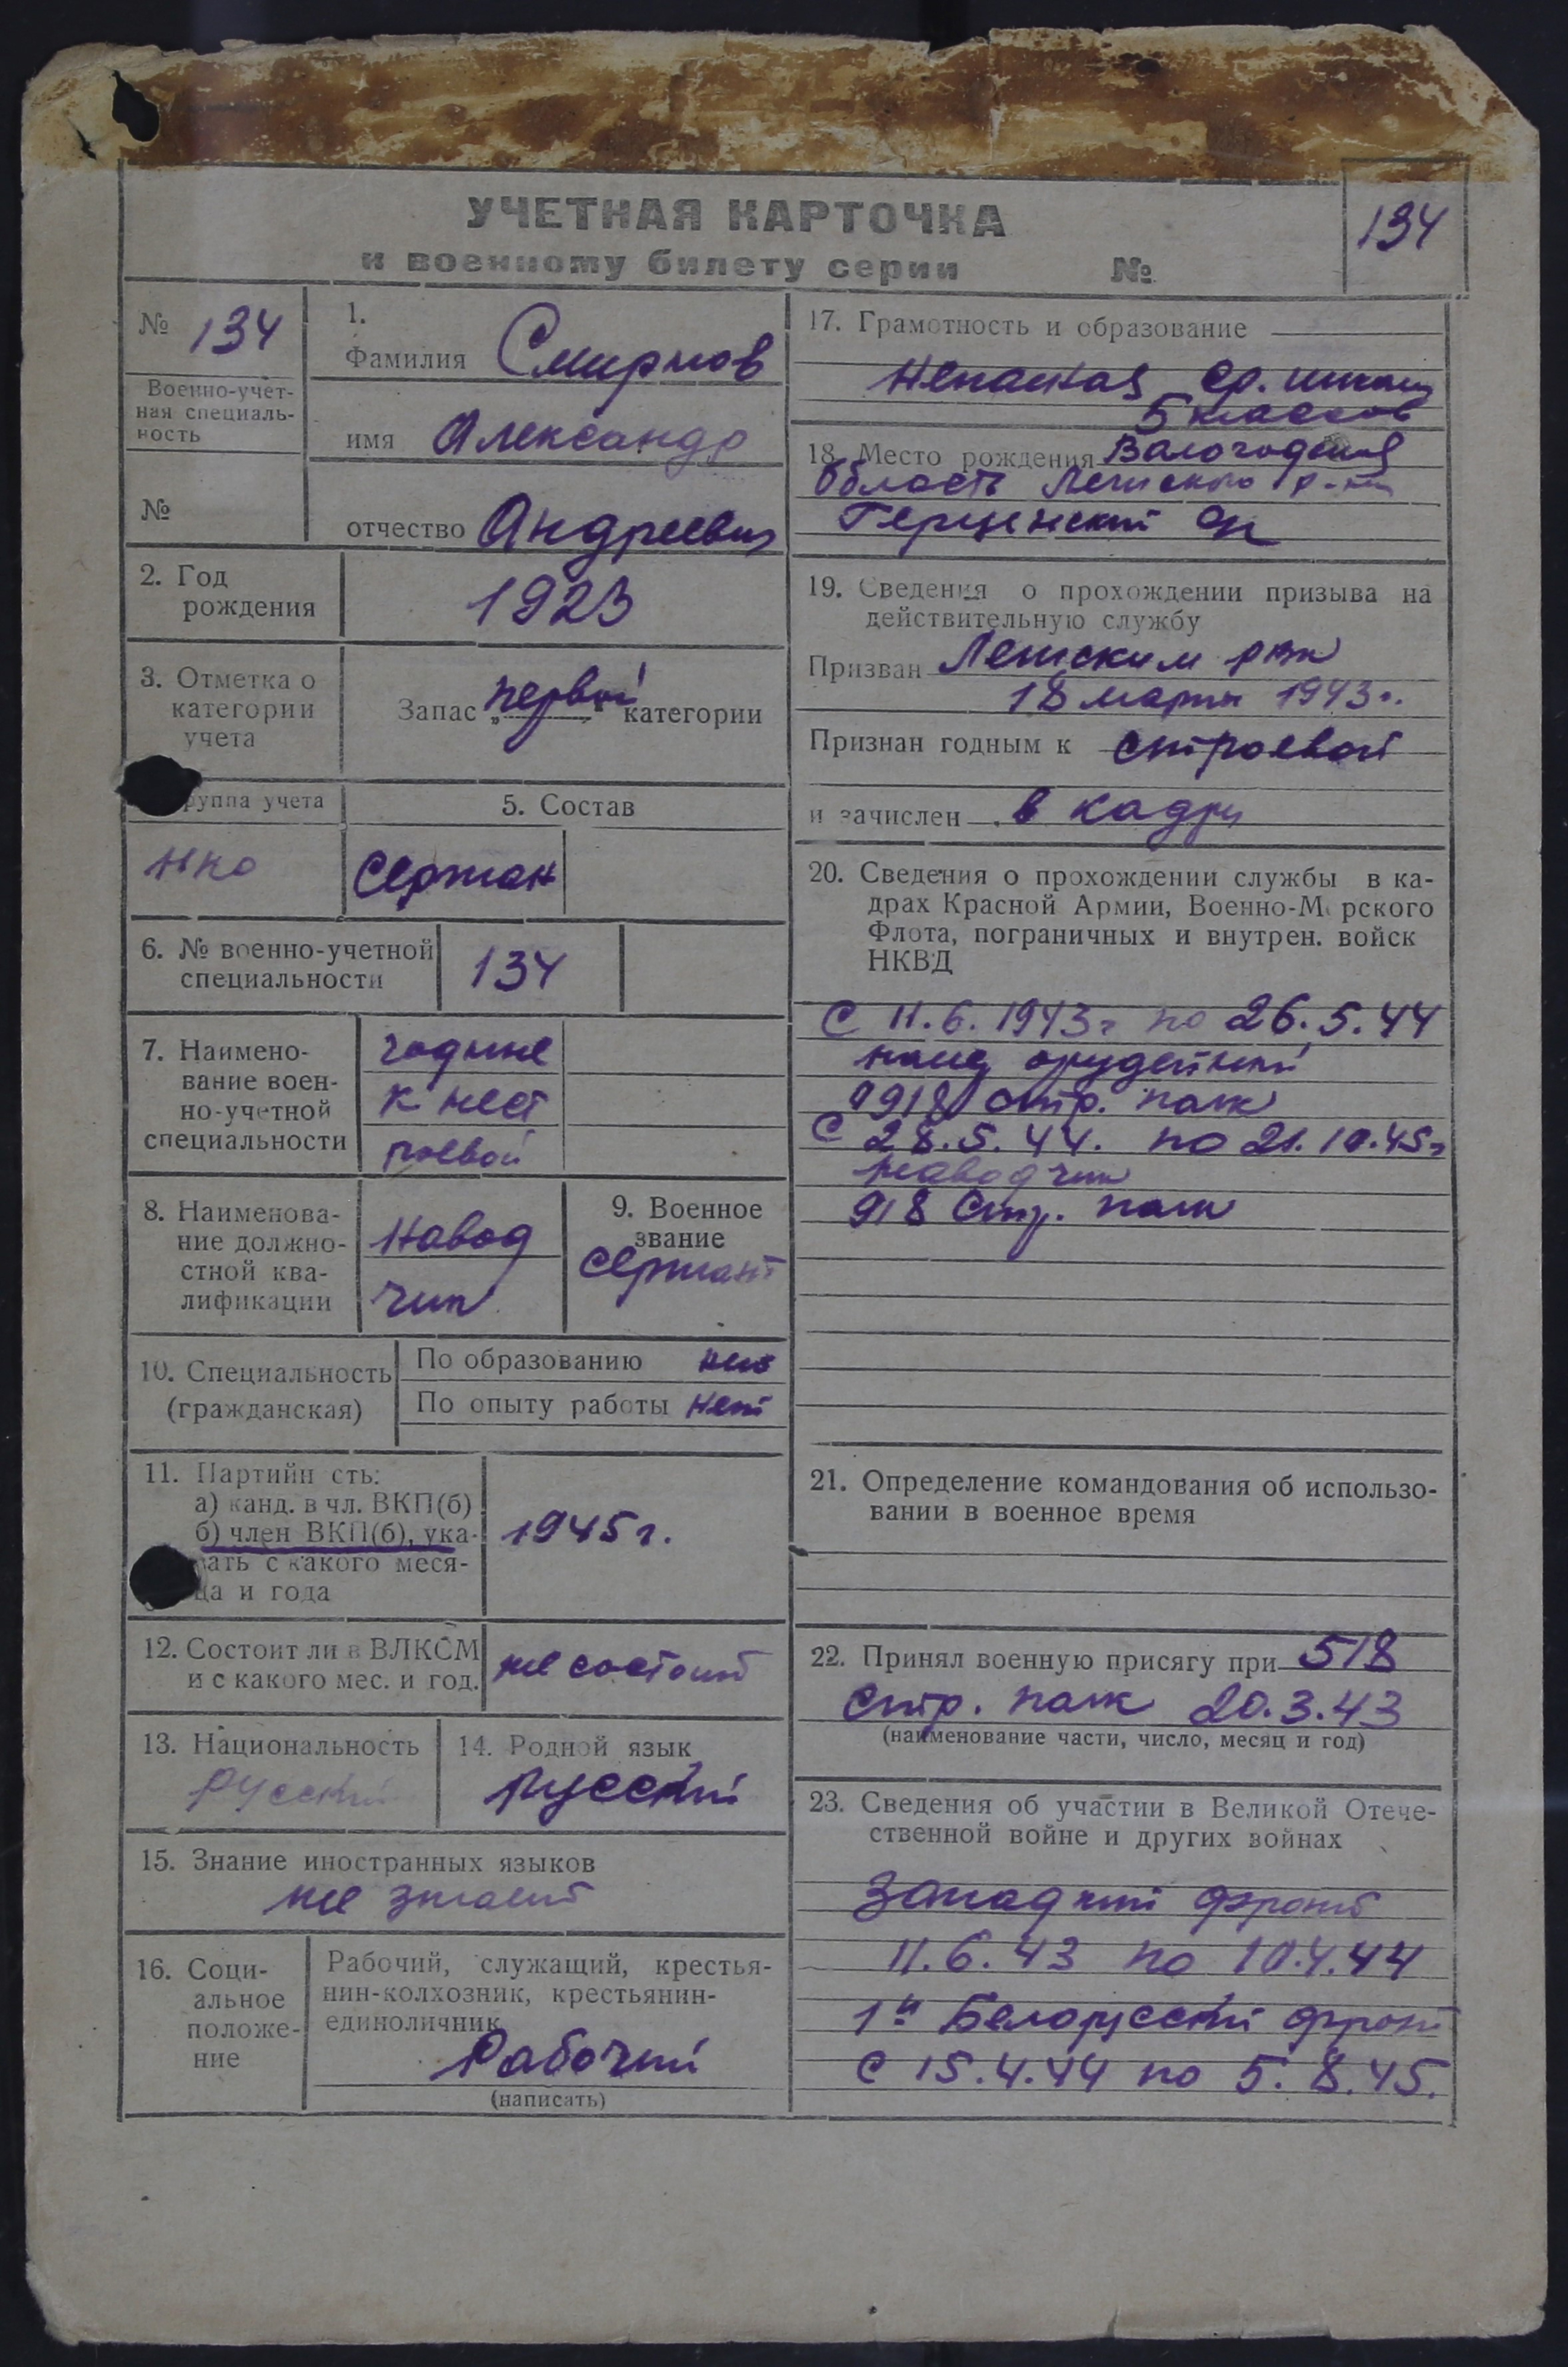 УЧЕТНАЯ КАРТОЧКА
к военному билету серии №
134
№ 134
Военно-учет-
ная специаль-
ность
№
1.
Фамилия Смирнов
имя Александр
отчество Андреевич
2. Год
рождения
1923
3. Отметка о
категории
учета
Запас „первой“ категории
руппа учета
НКО
5. Состав
Сержан
6. № военно-учетной
специальности
134
7. Наимено-
вание воен-
но-учетной
специальности
годные
к нест
роевой
8. Наименова-
ние должно-
стной ква-
лификации
Навод
чик
9. Военное
звание
Сержант
10. Специальность
(гражданская)
По образованию нет
По опыту работы нет
11. Партийн сть:
а) канд. в чл. ВКП(б)
б) член ВКП(б), ука-
зать с какого меся-
ца и года
1945 г.
12. Состоит ли в ВЛКСМ
и с какого мес. и год.
не состоит
13. Национальность
русский
14. Родной язык
русский
15. Знание иностранных языков
не знает
16. Соци-
альное
положе-
ние
Рабочий, служащий, крестья-
нин-колхозник, крестьянин-
единоличник
Рабочий
(написать)
17. Грамотность и образование
ср.
5 классов
18. Место рождения
область р-н
19. Сведения о прохождении призыва на
действительную службу
Призван рвк
18 марта 1943 г.
Признан годным к строевой
и зачислен в кадры
20. Сведения о прохождении службы в ка-
драх Красной Армии, Военно-М рского
Флота, пограничных и внутрен. войск
НКВД
С 11.6.1943 г по 26.5.44
орудейный
918 стр. полк
С 28.5.44. по 21.10.45 г
наводчик
918 Стр. полк
21. Определение командования об использо-
вании в военное время
22. Принял военную присягу при 518
стр. полк 20.3.43
(наименование части, число, месяц и год)
23. Сведения об участии в Великой Отече-
ственной войне и других войнах
Западный фронт
11.6.43 по 10.4.44
1й Белорусский фронт
С 15.4.44 по 5.8.45.